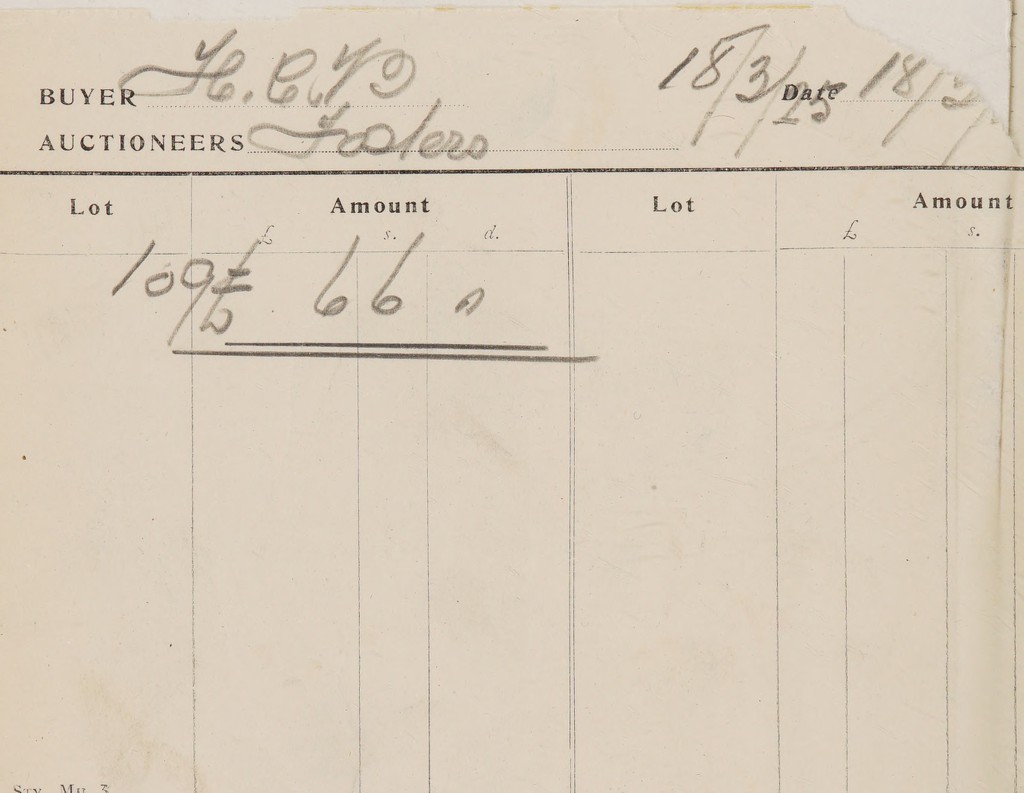 BUYER H.C.
18/3/25 Date 18/3/
AUCTIONEERS Fosters
Lot Amount Lot Amount
£ s. d. £ s.
109 £ 6 6 0
Sty. Mu. 3